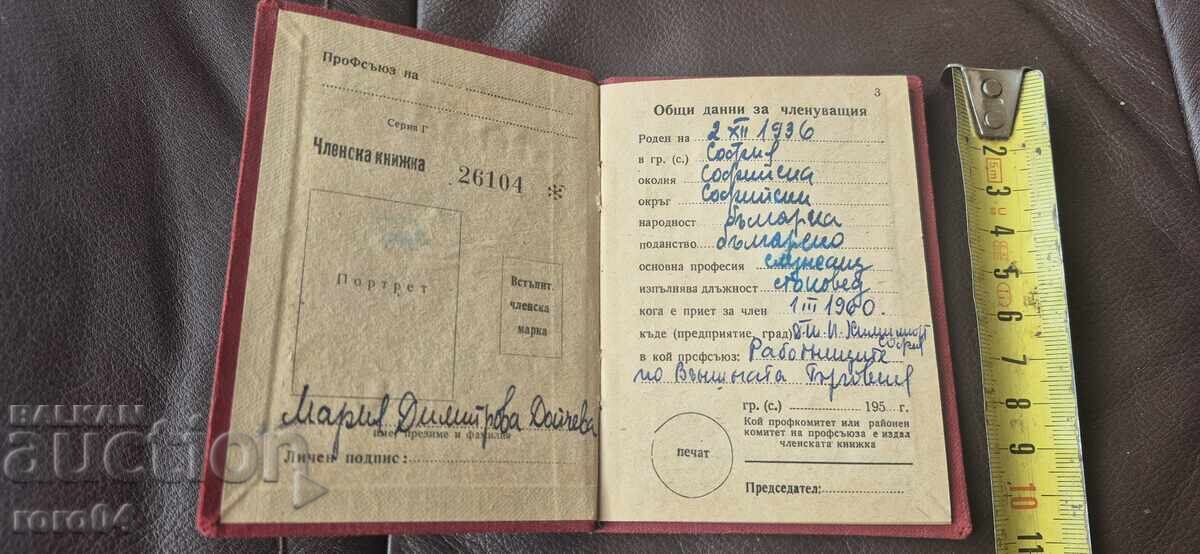 ПроФсъюз на
Серия Г
Членска книжка
26104 *
Портрет
Встъпит.
членска
марка
Мария Димитрова Дойчева
име, презиме и фамилия
Личен подпис:
3
Общи данни за членуващия
Роден на 2 XII 1936
в гр. (с.) София
околия Софийска
окръг Софийски
народност българка
поданство българско
основна професия служещ
изпълнява длъжност стоковед
кога е приет за член 1 III 1960.
къде (предприятие, град) Химимпорт
София
в кой профсъюз: Работниците
по Външната Търговия
гр. (с.) 195 г.
Кой профкомитет или районен
комитет на профсъюза е издал
членската книжка
печат
Председател:
BALKAN
auction
roro64
2
3
4
5
6
7
8
9
10
11
5m